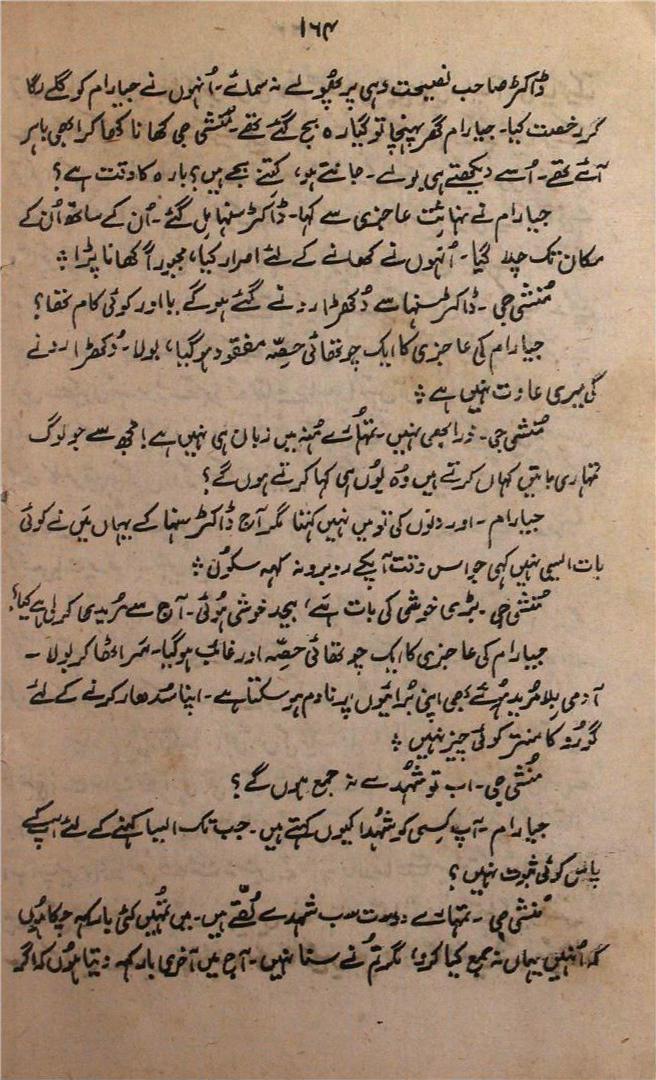 ۱۶۴
ڈاکٹر صاحب نصیحت دہی پر پھولے نہ سمائے۔ اُنہوں نے جیارام کو گلے لگا
کر رخصت کیا۔ جیارام گھر پہنچا تو گیارہ بج گئے تھے۔ مُنشی جی کھانا کھا کر ابھی باہر
آئے تھے۔ اُسے دیکھتے ہی بولے۔ جانتے ہو، کتنے بجے ہیں؟ بارہ کا وقت ہے؟
جیارام نے نہائت عاجزی سے کہا۔ ڈاکٹر سنہا مل گئے۔ اُن کے ساتھ اُن کے
مکان تک چلا گیا۔ اُنہوں نے کھانے کے لئے اصرار کیا، مجبوراً کھانا پڑا ؞
مُنشی جی۔ ڈاکٹر سنہا سے دُکھڑا رونے گئے ہو گے یا اور کوئی کام تھا؟
جیارام کی عاجزی کا ایک چوتھائی حصّہ مفقود ہو گیا، بولا۔ دُکھڑا رونے
کی میری عادت نہیں ہے ؞
مُنشی جی۔ ذرا بھی نہیں۔ تمہارے مُنہ میں زبان ہی نہیں ہے! مجھ سے جو لوگ
تمہاری باتیں کہاں کرتے ہیں وُہ یوں ہی کہا کرتے ہوں گے؟
جیارام۔ اور دنوں کی تو میں نہیں کہتا مگر آج ڈاکٹر سنہا کے یہاں میں نے کوئی
بات ایسی نہیں کہی جو اس وقت آپکے روبرو نہ کہہ سکوں ؞
مُنشی جی۔ بڑی خوشی کی بات ہے، بیحد خوشی ہوئی۔ آج سے مُریدی کر لی ہے کیا؟
جیارام کی عاجزی کا ایک چوتھائی حصّہ اور غائب ہو گیا۔ سَر اٹھا کر بولا۔
آدمی بِلا مُرید ہوئے بھی اپنی بُرائیوں پر نادم ہو سکتا ہے۔ اپنا سُدھار کرنے کے لئے
گورُو کا منتر کوئی چیز نہیں ؞
مُنشی جی۔ اب تو شُہدے نہ جمع ہوں گے؟
جیارام۔ آپ کسی کو شُہدا کیوں کہتے ہیں۔ جب تک ایسا کہنے کے لئے آپ کے
پاس کوئی ثبوت نہیں؟
مُنشی جی۔ تمہارے دوست سب شہدے لُچّے ہیں۔ میں تمہیں کئی بار کہہ چکا ہوں
کہ اُنہیں یہاں نہ جمع کیا کرو، مگر تُم نے سنا نہیں۔ آج میں آخری بار کہہ دیتا ہوں کہ اگر